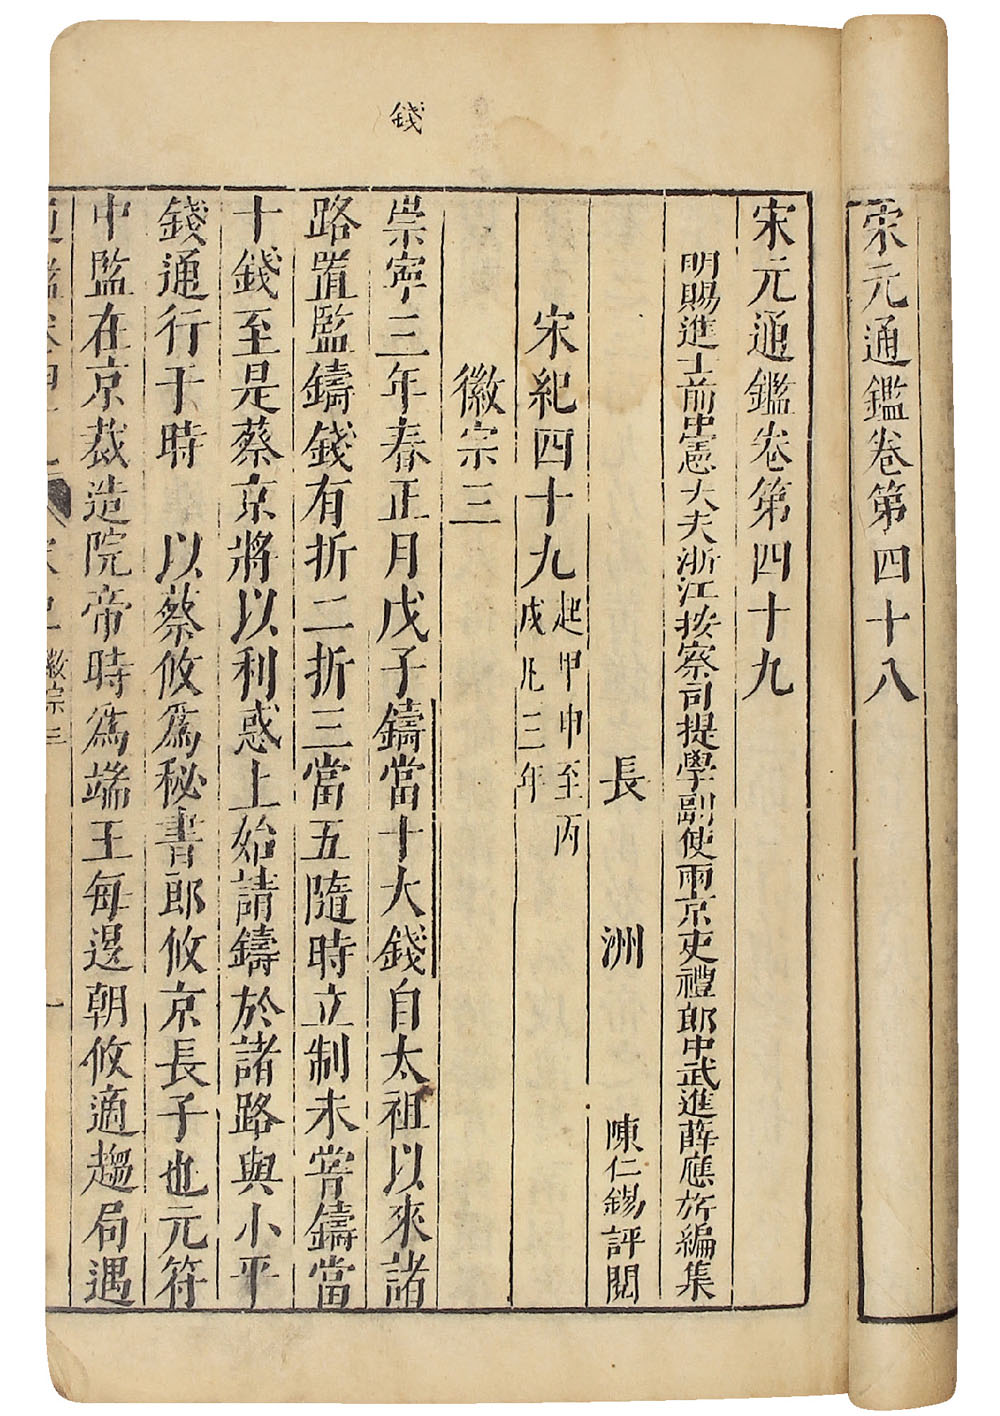 宋元通鑑卷第四十八
宋元通鑑卷第四十九
明賜進士前中憲大夫浙江按察司提學副使兩京吏禮郎中武進薛應旂編集
長洲 陳仁錫評閱
宋紀四十九 起甲申至丙
戌凡三年
徽宗三
錢
崇寧三年春正月戊子鑄當十大錢自太祖以來諸
路置監鑄錢有折二折三當五隨時立制未嘗鑄當
十錢至是蔡京將以利惑上始請鑄於諸路與小平
錢通行于時 以蔡攸爲秘書郎攸京長子也元符
中監在京裁造院帝時爲端王每退朝攸適趨局遇
徽宗三 一